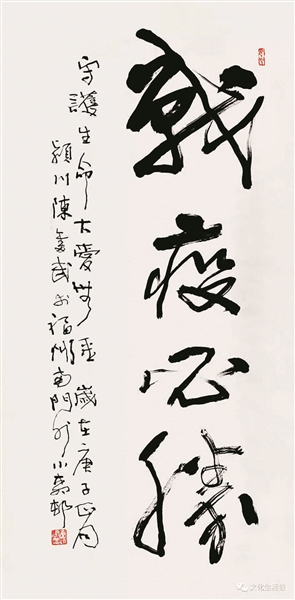 戰疫必勝
守護生命大愛無疆歲在庚子正月
潁川陳奮武於福州南門外小邨
文化生活